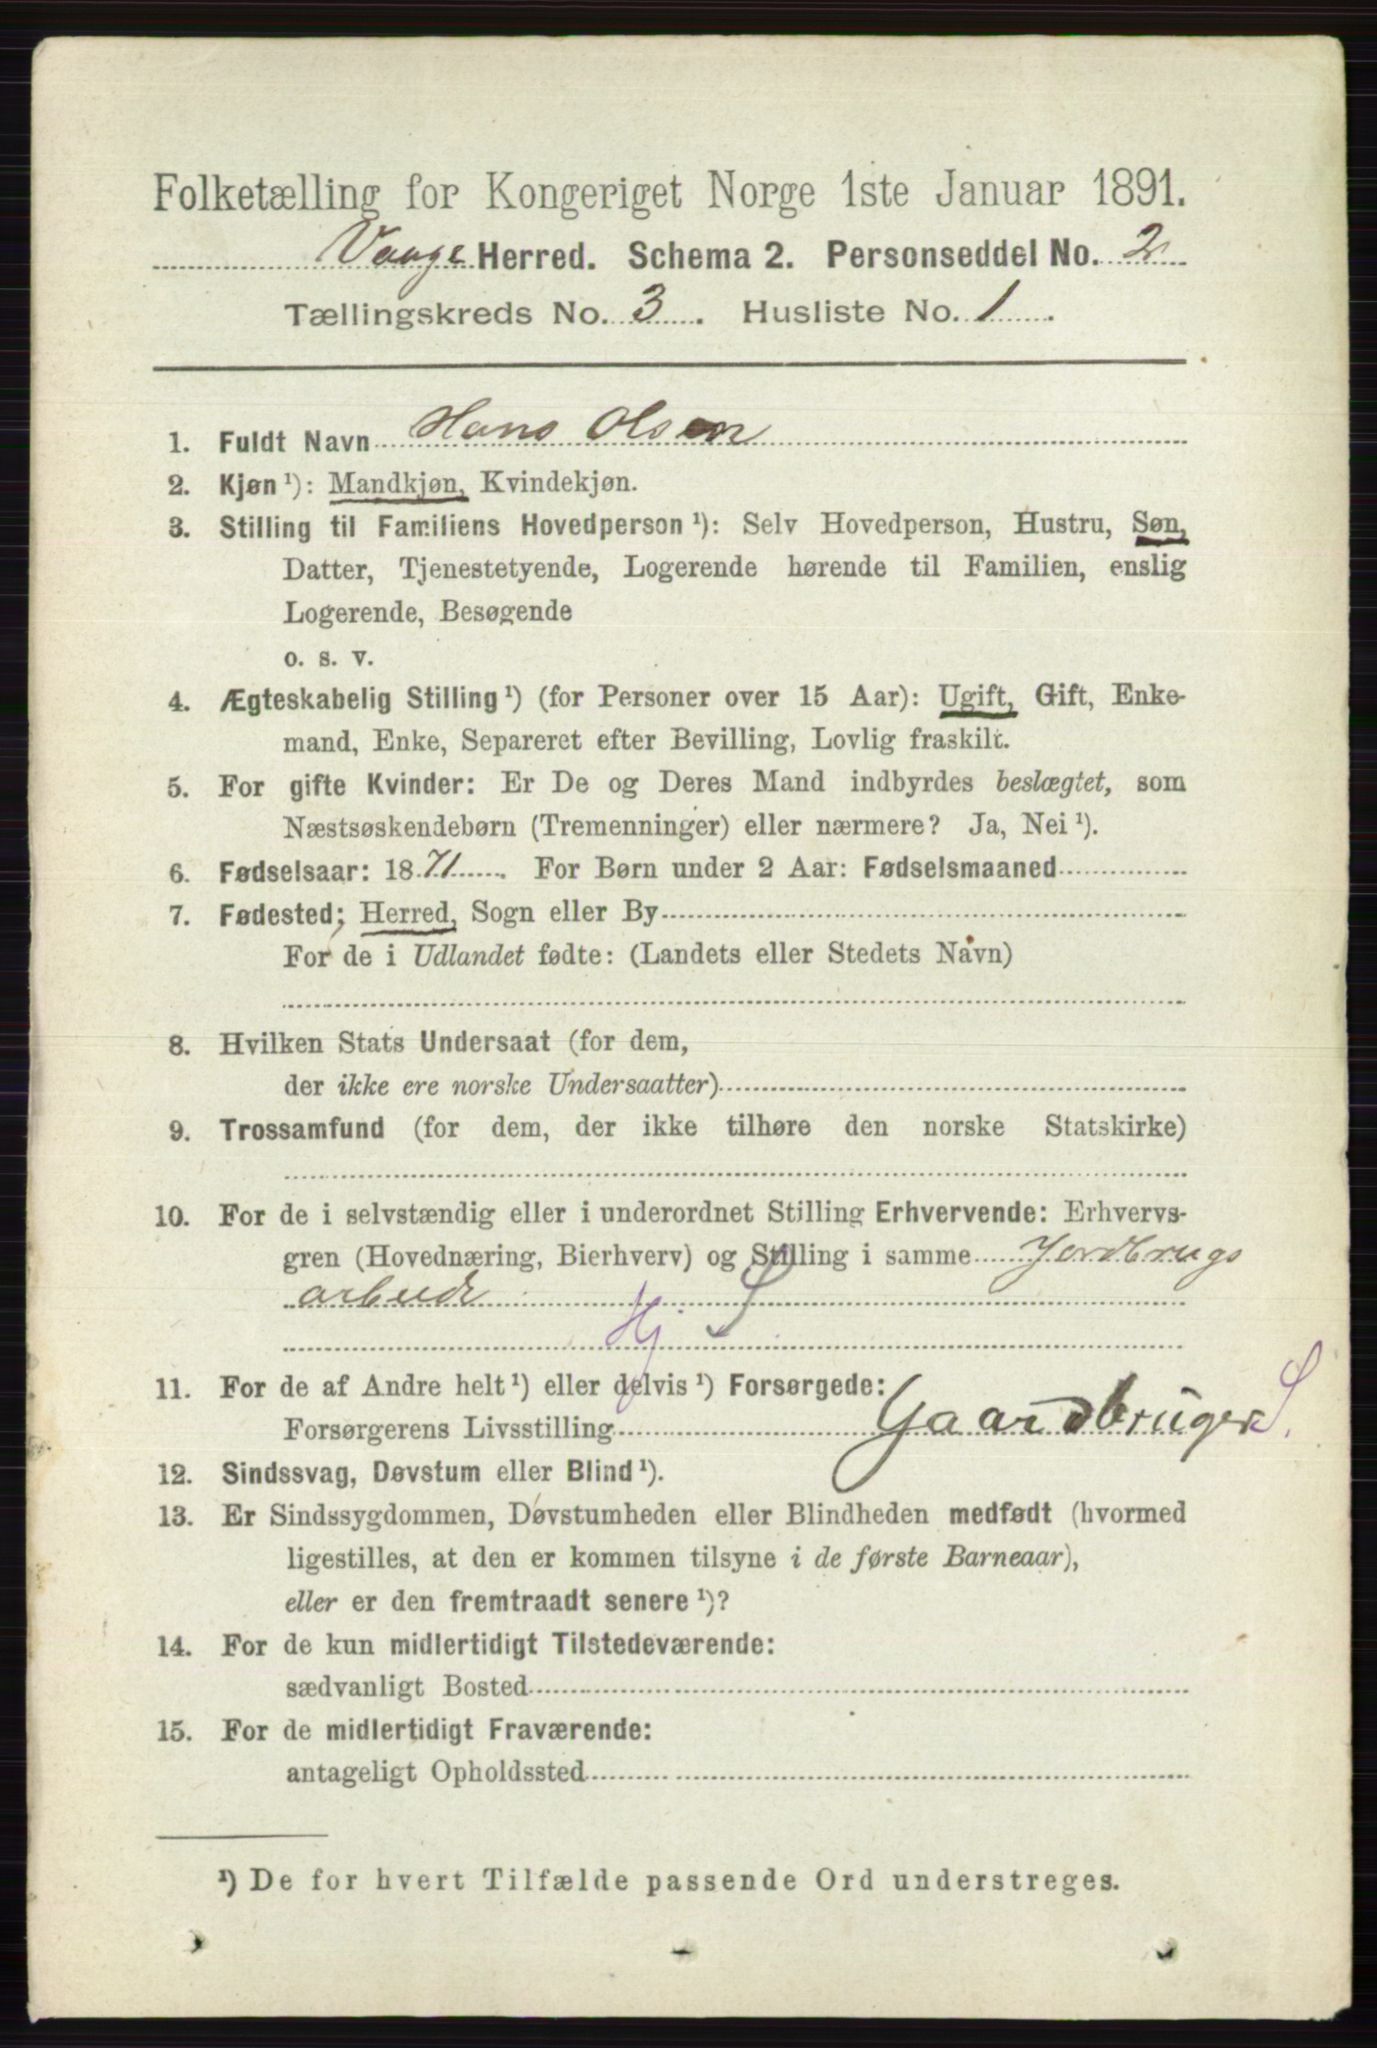 Folketælling for Kongeriget Norge 1ste Januar 1891.
Vaage Herred. Schema 2. Personseddel No. 2
Tællingskreds No. 3. Husliste No. 1.
1. Fuldt Navn Hans Olsen
2. Kjøn ¹): Mandkjøn, Kvindekjøn.
3. Stilling til Familiens Hovedperson ¹): Selv Hovedperson, Hustru, Søn,
Datter, Tjenestetyende, Logerende hørende til Familien, enslig
Logerende, Besøgende
o. s. v.
4. Ægteskabelig Stilling ¹) (for Personer over 15 Aar): Ugift, Gift, Enke-
mand, Enke, Separeret efter Bevilling, Lovlig fraskilt.
5. For gifte Kvinder: Er De og Deres Mand indbyrdes beslægtet, som
Næstsøskendebørn (Tremenninger) eller nærmere? Ja, Nei ¹).
6. Fødselsaar: 1871. For Børn under 2 Aar: Fødselsmaaned
7. Fødested; Herred, Sogn eller By
For de i Udlandet fødte: (Landets eller Stedets Navn)
8. Hvilken Stats Undersaat (for dem,
der ikke ere norske Undersaatter)
9. Trossamfund (for dem, der ikke tilhøre den norske Statskirke)
10. For de i selvstændig eller i underordnet Stilling Erhvervende: Erhvervs-
gren (Hovednæring, Bierhverv) og Stilling i samme Jordbrugs
arbeide
Hj S
11. For de af Andre helt ¹) eller delvis ¹) Forsørgede:
Forsørgerens Livsstilling Gaardbruger S.
12. Sindssvag, Døvstum eller Blind ¹).
13. Er Sindssygdommen, Døvstumheden eller Blindheden medfødt (hvormed
ligestilles, at den er kommen tilsyne i de første Barneaar),
eller er den fremtraadt senere ¹)?
14. For de kun midlertidigt Tilstedeværende:
sædvanligt Bosted
15. For de midlertidigt Fraværende:
antageligt Opholdssted
¹) De for hvert Tilfælde passende Ord understreges.